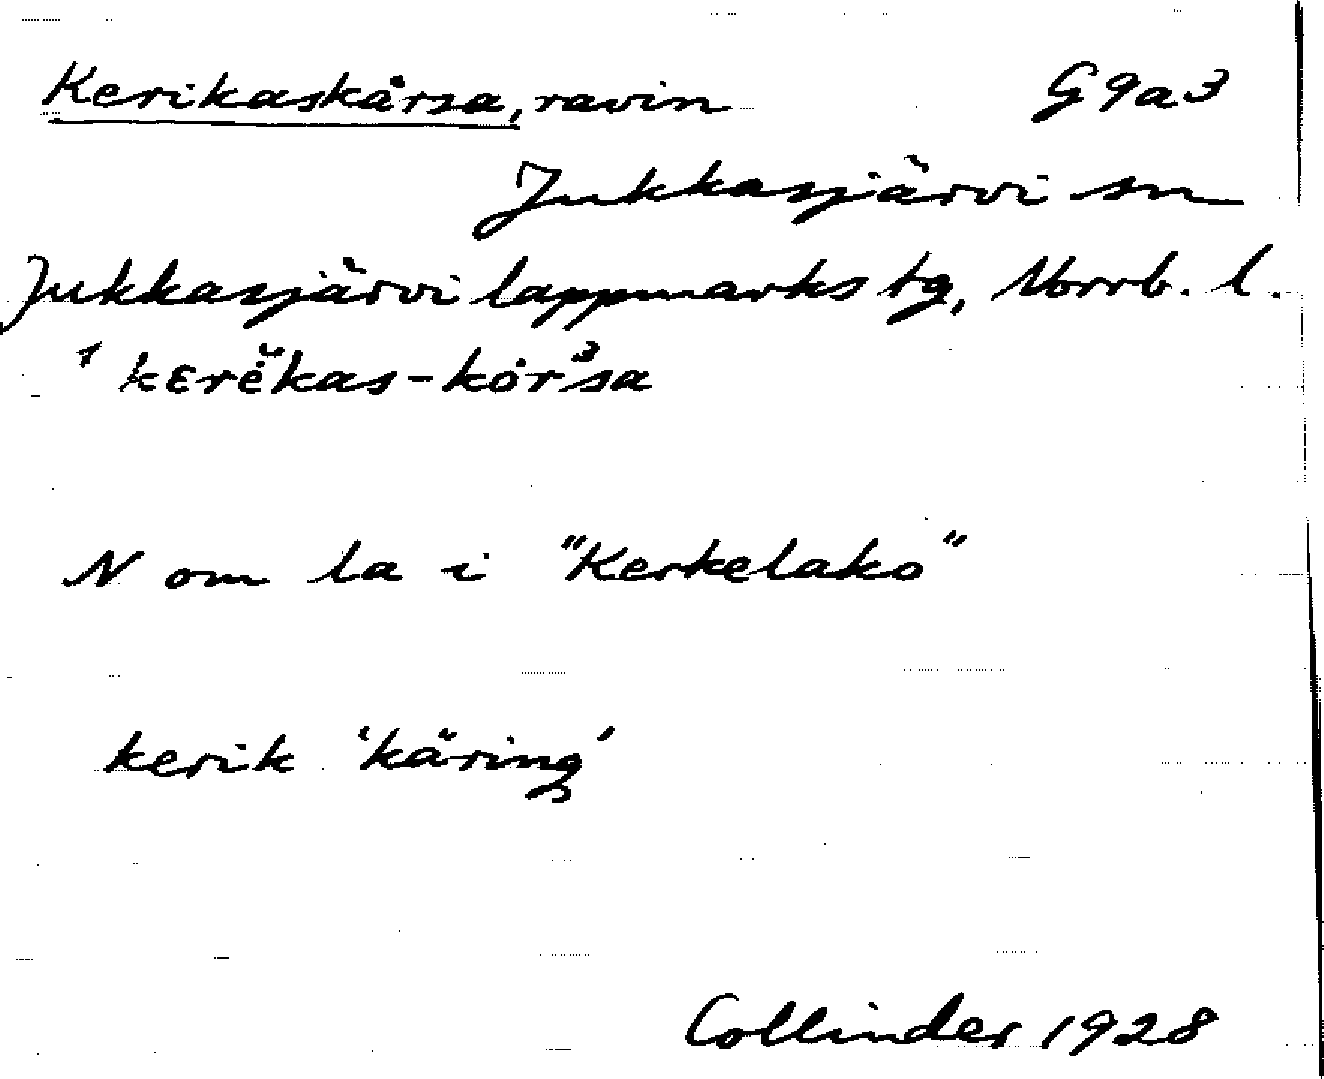 Kerikaskårsa, ravin G9a3
Jukkasjärvi sn
Jukkasjärvi lappmarks tg, Norrb. l.
N om la i "Kerkelako"
kerik 'käring'
Collinder 1928